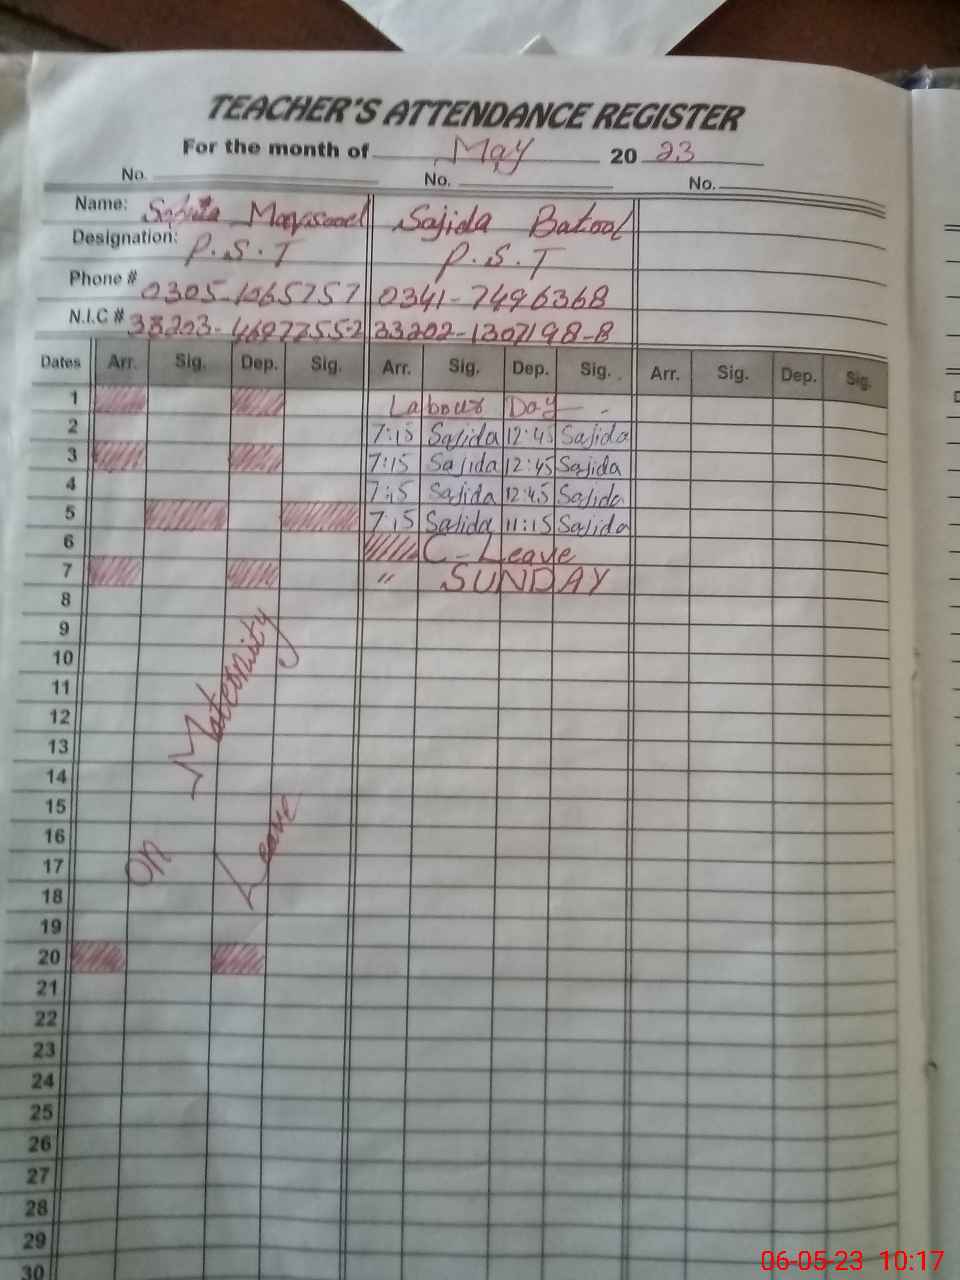 TEACHER'S ATTENDANCE REGISTER
For the month of May 20 23
No. No. No.
Name: Sajida Batool
Designation: P.S.T P.S.T
Phone # 0305-1065757 0341-7496368
N.I.C # 33202-1307198-8
Dates Arr. Sig. Dep. Sig. Arr. Sig. Dep. Sig. Arr. Sig. Dep. Sig.
1 Labour Day
2 7:15 Sajida 12:45 Sajida
3 7:15 Sajida 12:45 Sajida
4 7:15 Sajida 12:45 Sajida
5 7:15 Sajida 11:15 Sajida
6 C-Leave
7 " SUNDAY
8
9
10
11
12
13
14
15
16
17
18
19
20
21
22
23
24
25
26
27
28
29
30
On Maternity Leave
06-05-23 10:17